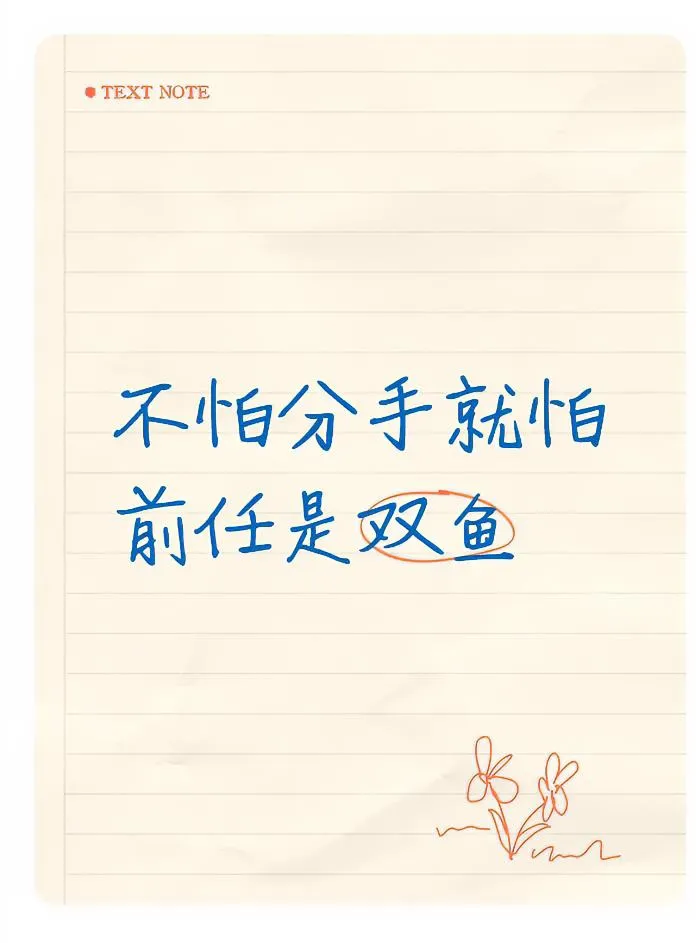 TEXT NOTE
不怕分手就怕
前任是双鱼